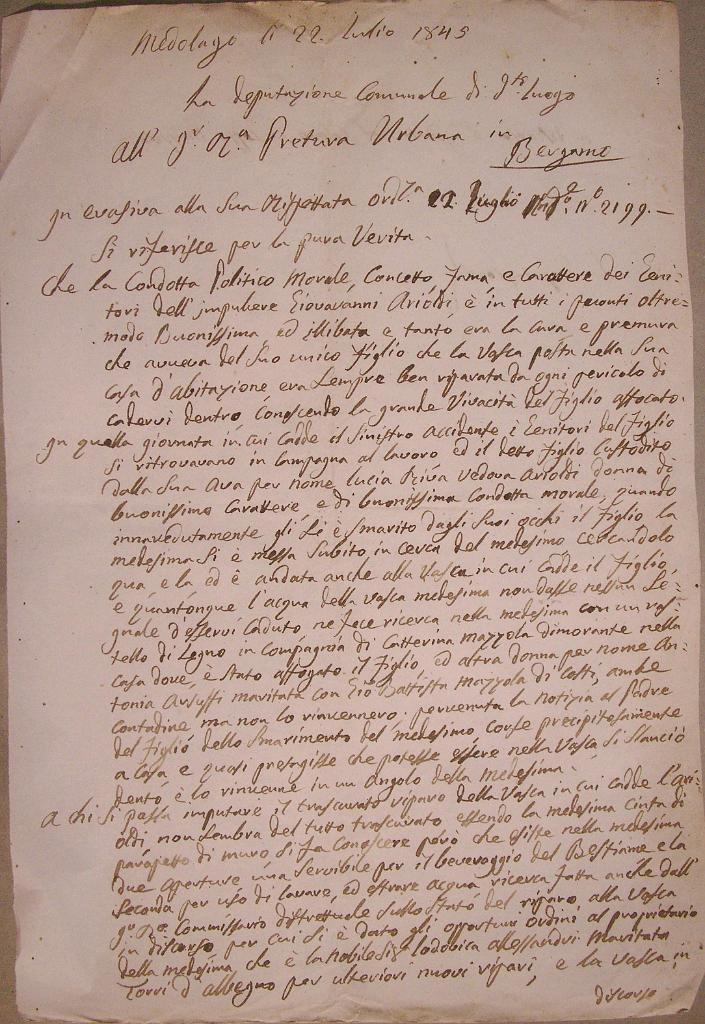 Medolago li 22. Lulio 1845
La deputazione Comunale di do. Luogo
All' I. R. Pretura Urbana in
Bergamo
In evasiva alla Sua Rispettata Ord.za 22 Luglio And.e N.o 2199.-
Si riferisce per la pura Verita.
che la Condotta Politico Morale, Concetto Fama, e Carattere dei Geni=
tori dell'impubere Giovavanni Arioldi è in tutti i raconti oltre=
modo Buonissima ed illibata e tantó era la cura e premura
che aveva del Suo unico figlio che la Vasca posta nella Sua
Casa d'abitazione era Sempre ben riparata da ogni pericolo di
cadervi dentro, Conoscendo la grande Vivacità del figlio affocato.
In quella giornata in cui cadde il Sinistro accidente i Genitori del figlio
Si ritrovavano in Campagna al lavoro ed il detto figlio Custodito
dalla Sua Ava per nome Lucia Riva Vedova Arioldi donna di
buonissimo Carattere e di buonissima Condotta morale, quando
innavedutamente gli Si è Smarito dagli Suoi occhi il figlio la
medesima Si è messa Subito in cerca del medesimo cercandolo
qua e la ed è andata anche alla Vasca in cui cadde il figlio,
e quantonque l'acqua della Vasca medesima non dasse nessun Se=
gnale d'esservi Caduto ne fece ricerca nella medesima con un ras=
tello di Legno in Compagnia di Catterina Mazzola dimorante nella
Casa dove, è Stato affogato il figlio, ed altra donna per nome An=
tonia maritata con Gio Battista Mazzola di Costi, ambe
Contadine ma non lo rinvennero: pervenuta la Notizia al Padre
del figlio dello Smarimento del medesimo, Corse precipitosamente
a Casa e quasi presagisse che potesse essere nella Vasca Si Slanciò
dentó e lo rinvenne in un angolo della medesima.
a chi Si possa imputare il trascurato riparo della Vasca in cui cadde l'Ari=
oldi non Sembra del tutto trascurato essendo la medesima Cinta di
parapetto di muro, Si fa Conoscere peró che esiste nella medesima
due aperture una Servibile per il beveraggio del Bestiame e la
Seconda per uso di lavare, ed estrare acqua ricerca fatta anche dall'
I. R. Commissario distrettuale Sullo Stato del riparo alla Vasca
in discorso per cui Si è dato gli opportuni ordini al proprietario
della medesima, che è la Nobile Sig. Lodovica Alessandri Maritata
Torri d'albegno per ulteriori nuovi ripari, e la Vasca in
discorso